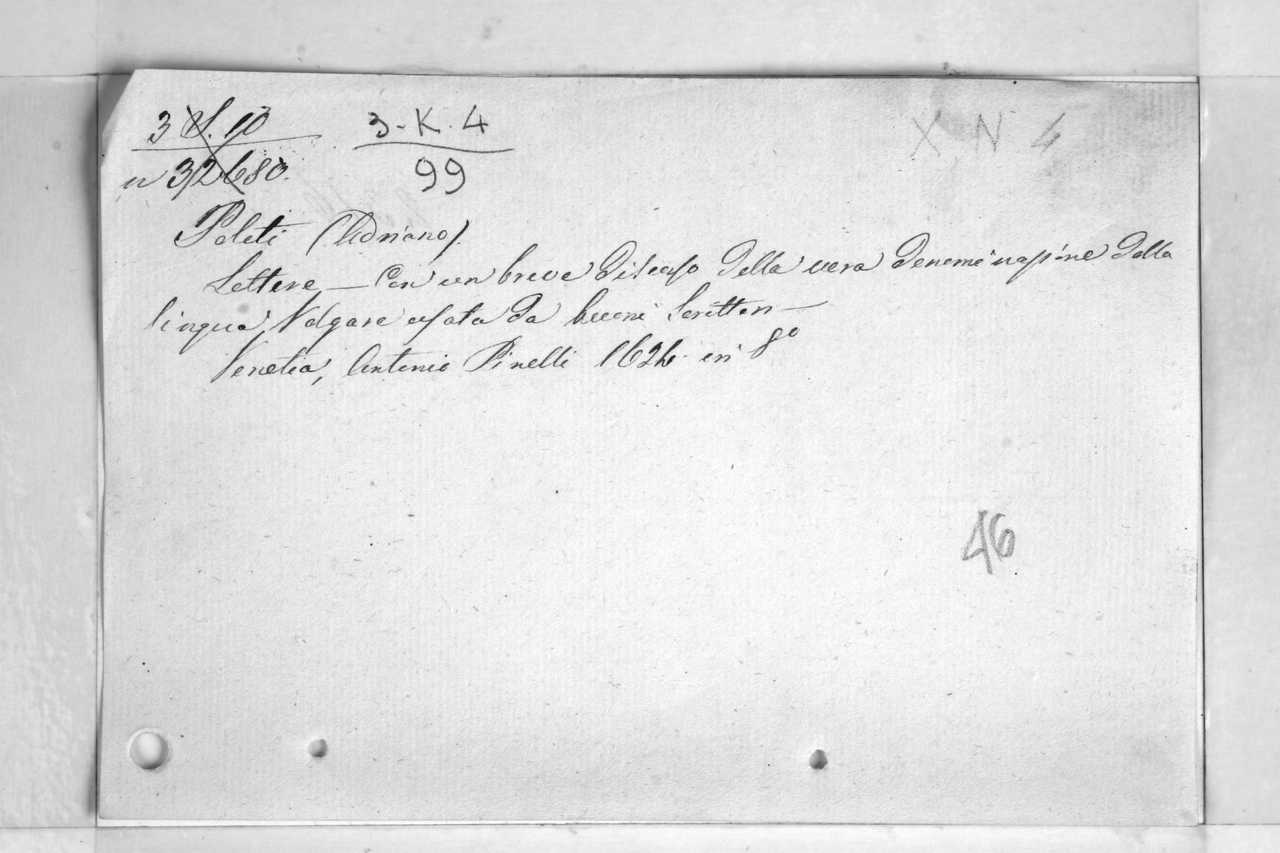 3 S. 10
3-K. 4
X N 4
n 32680.
99
Politi (Adriano).
Lettere – Con un breve discorso della vera denominazione della
lingua Volgare usata da buoni Scrittori –
Venetia, Antonio Pinelli 1624 in 8º
46